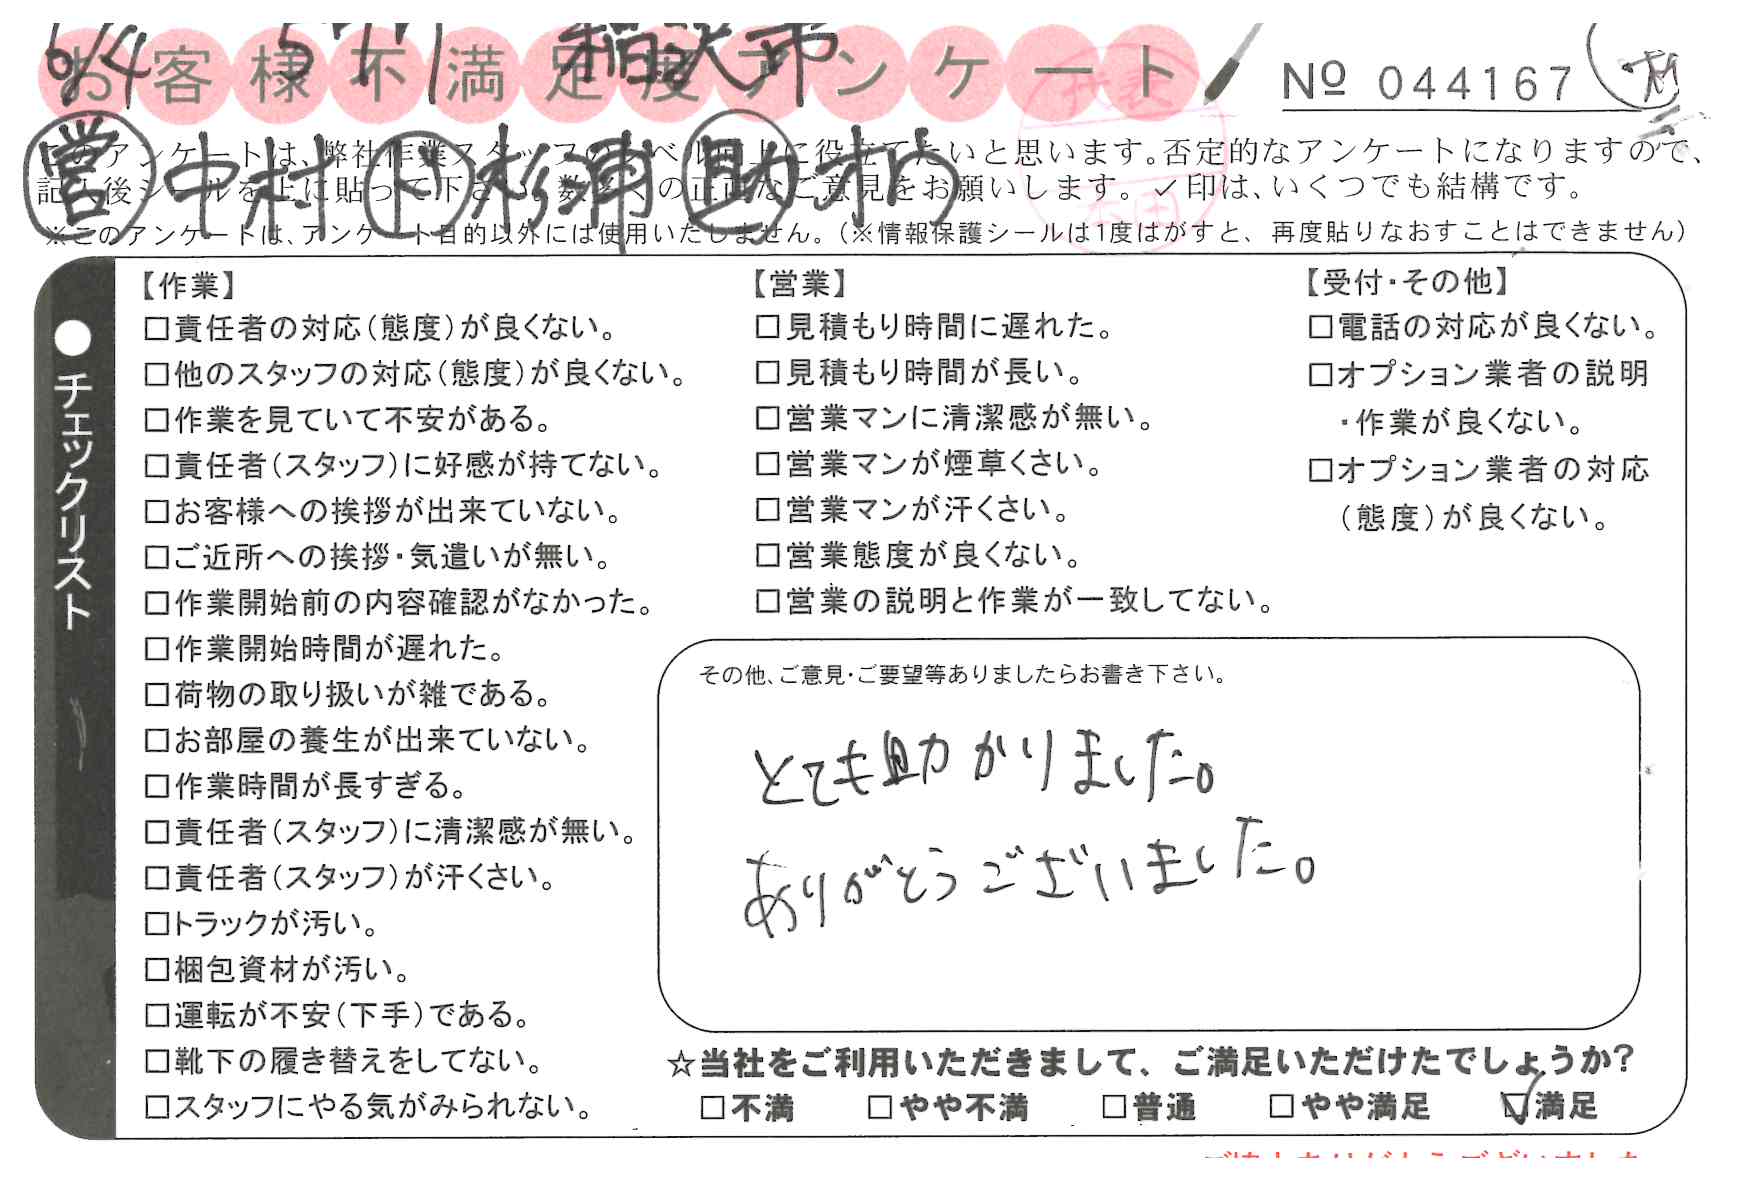 6/4 稲沢市
お客様不満足度アンケート
№ 044167
営 中村 ド 杉浦 助 オカ
このアンケートは、弊社作業スタッフのレベル向上に役立てたいと思います。否定的なアンケートになりますので、
記入後シールを上に貼って下さい。数多くの正直なご意見をお願いします。✓印は、いくつでも結構です。
※このアンケートは、アンケート目的以外には使用いたしません。（※情報保護シールは1度はがすと、再度貼りなおすことはできません）
●チェックリスト
【作業】
□責任者の対応（態度）が良くない。
□他のスタッフの対応（態度）が良くない。
□作業を見ていて不安がある。
□責任者（スタッフ）に好感が持てない。
□お客様への挨拶が出来ていない。
□ご近所への挨拶・気遣いが無い。
□作業開始前の内容確認がなかった。
□作業開始時間が遅れた。
□荷物の取り扱いが雑である。
□お部屋の養生が出来ていない。
□作業時間が長すぎる。
□責任者（スタッフ）に清潔感が無い。
□責任者（スタッフ）が汗くさい。
□トラックが汚い。
□梱包資材が汚い。
□運転が不安（下手）である。
□靴下の履き替えをしてない。
□スタッフにやる気がみられない。
【営業】
□見積もり時間に遅れた。
□見積もり時間が長い。
□営業マンに清潔感が無い。
□営業マンが煙草くさい。
□営業マンが汗くさい。
□営業態度が良くない。
□営業の説明と作業が一致してない。
【受付・その他】
□電話の対応が良くない。
□オプション業者の説明
・作業が良くない。
□オプション業者の対応
（態度）が良くない。
その他、ご意見・ご要望等ありましたらお書き下さい。
とても助かりました。
ありがとうございました。
☆当社をご利用いただきまして、ご満足いただけたでしょうか?
□不満 □やや不満 □普通 □やや満足 ☑満足